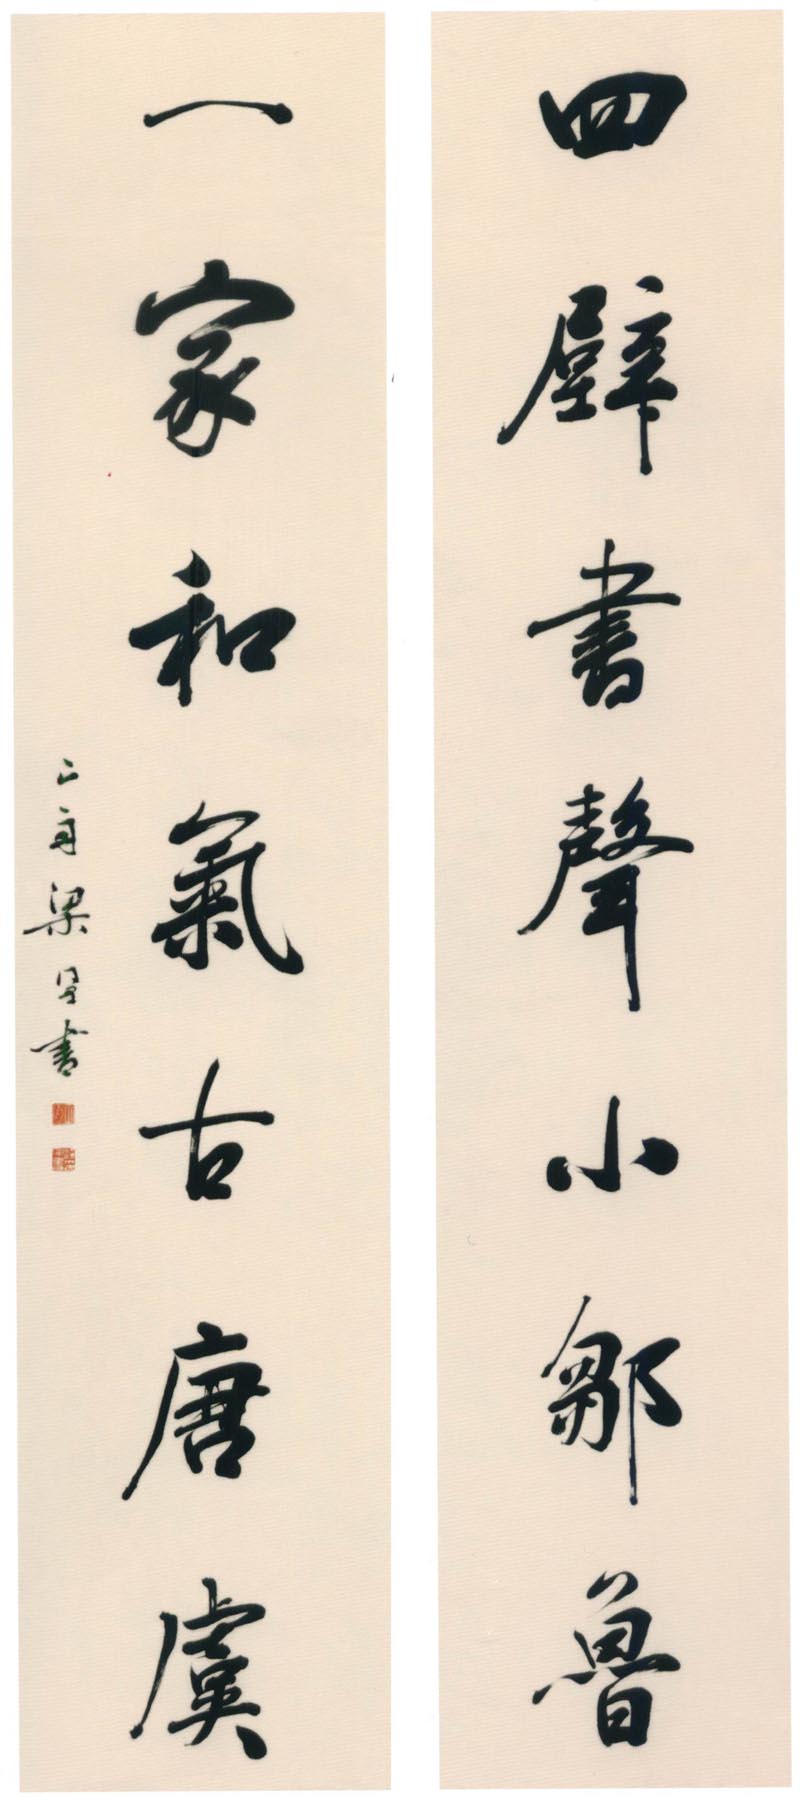 四壁書聲小鄒魯
一家和氣古唐虞
梁
書